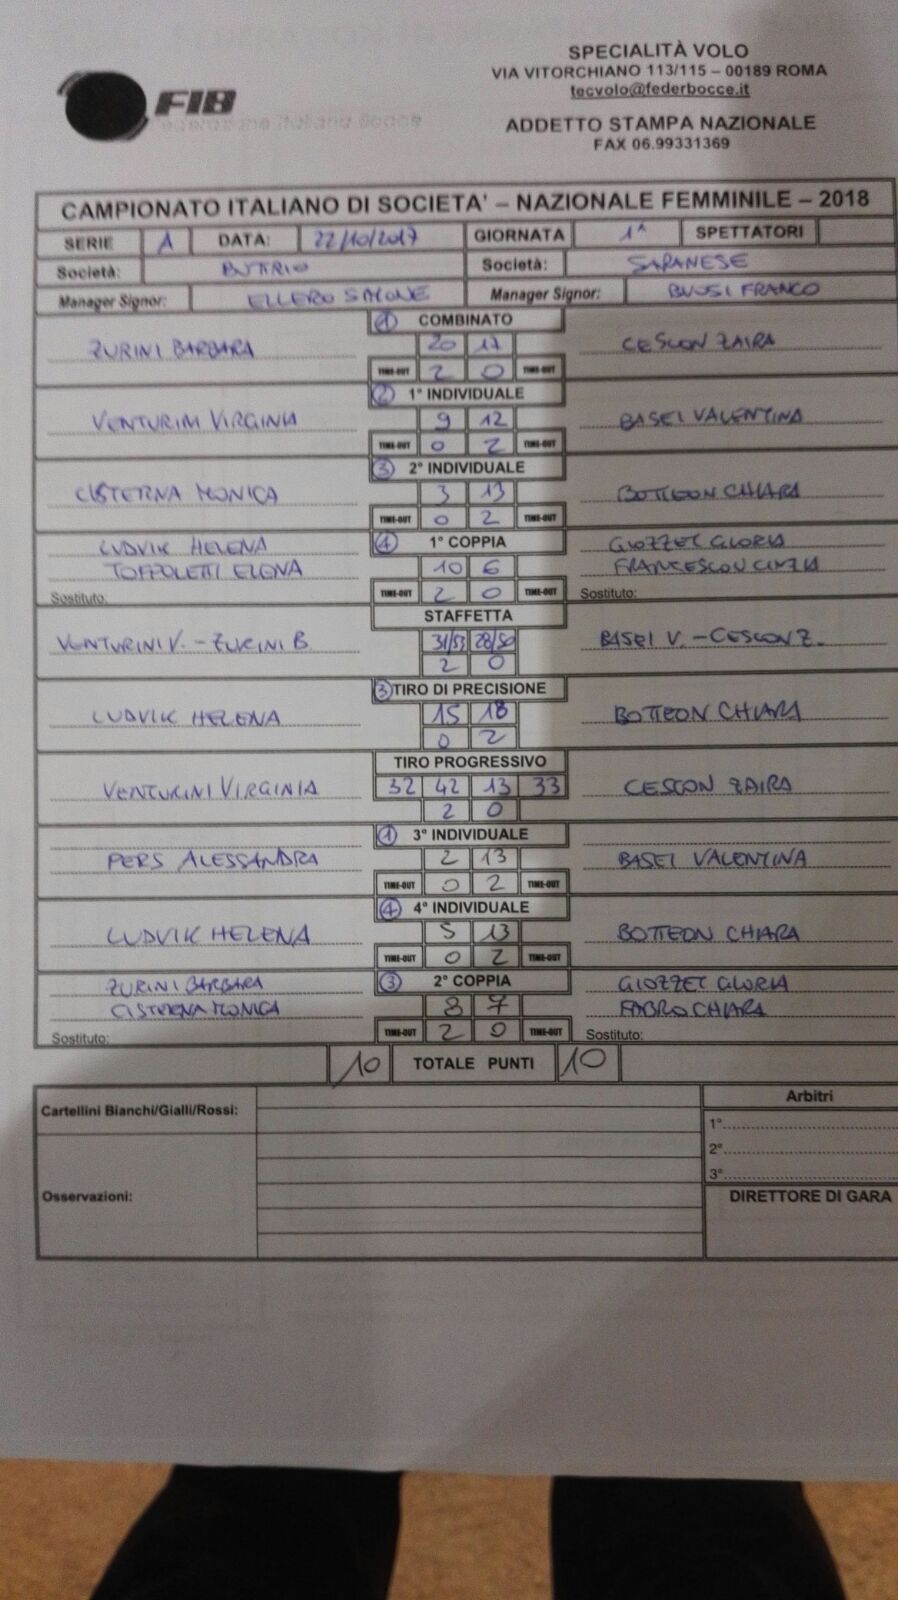 SPECIALITÀ VOLO
VIA VITORCHIANO 113/115 – 00189 ROMA
tecvolo@federbocce.it
FIB
Federazione Italiana Bocce
ADDETTO STAMPA NAZIONALE
FAX 06.99331369
CAMPIONATO ITALIANO DI SOCIETA' – NAZIONALE FEMMINILE – 2018
SERIE A DATA: 22/10/2017 GIORNATA 1^ SPETTATORI
Società: BUTTRIO Società: SARANESE
Manager Signor: ELLERO SIMONE Manager Signor: BUOSI FRANCO
1 COMBINATO
ZURINI BARBARA 20 17 CESCON ZAIRA
TIME-OUT 2 0 TIME-OUT
2 1° INDIVIDUALE
VENTURINI VIRGINIA 9 12 BASEI VALENTINA
TIME-OUT 0 2 TIME-OUT
3 2° INDIVIDUALE
CISTERNA MONICA 3 13 BOTTEON CHIARA
TIME-OUT 0 2 TIME-OUT
LUDVIK HELENA 4 1° COPPIA GIOZZET GLORIA
TOFFOLETTI ELONA 10 6 FRANCESCON CINZIA
Sostituto: TIME-OUT 2 0 TIME-OUT Sostituto:
STAFFETTA
VENTURINI V. - ZURINI B. 31/53 28/50 BASEI V. - CESCON Z.
2 0
3 TIRO DI PRECISIONE
LUDVIK HELENA 15 18 BOTTEON CHIARA
0 2
TIRO PROGRESSIVO
VENTURINI VIRGINIA 32 42 13 33 CESCON ZAIRA
2 0
1 3° INDIVIDUALE
PERS ALESSANDRA 2 13 BASEI VALENTINA
TIME-OUT 0 2 TIME-OUT
4 4° INDIVIDUALE
LUDVIK HELENA 5 13 BOTTEON CHIARA
TIME-OUT 0 2 TIME-OUT
ZURINI BARBARA 3 2° COPPIA GIOZZET GLORIA
CISTERNA MONICA 8 7 FABRO CHIARA
Sostituto: TIME-OUT 2 0 TIME-OUT Sostituto:
10 TOTALE PUNTI 10
Cartellini Bianchi/Gialli/Rossi:
Arbitri
1°
2°
3°
Osservazioni:
DIRETTORE DI GARA